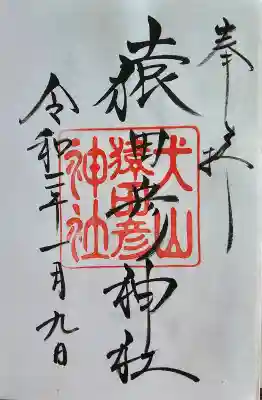 奉拝
猿田彦神社
犬山
猿田彦
神社
令和二年一月九日